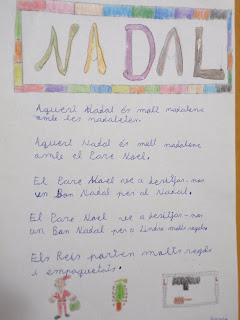 NADAL
Aquest Nadal és molt nadalenc
amb les nadales.
Aquest Nadal és molt nadalenc
amb el Pare Noel.
El Pare Noel ve a desitjar-nos
un Bon Nadal per al Nadal.
El Pare Noel ve a desitjar-nos
un Bon Nadal per a tindre molts regals.
Els Reis porten molts regals
i empaquetats.